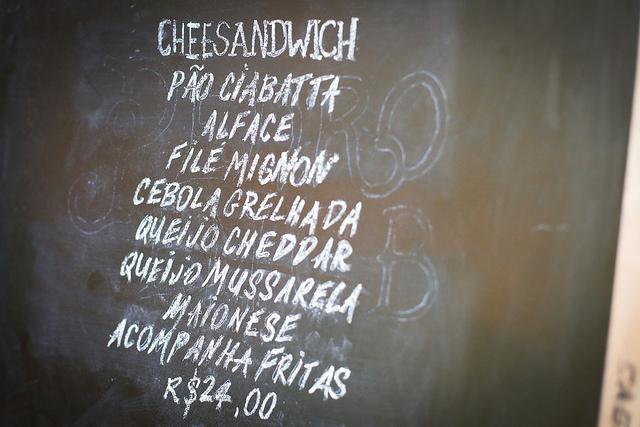 CHEESANDWICH
PÃO CIABATTA
ALFACE
FILE MIGNON
CEBOLA GRELHADA
QUEIJO CHEDDAR
QUEIJO MUSSARELA
MAIONESE
ACOMPANHA FRITAS
R$24,00